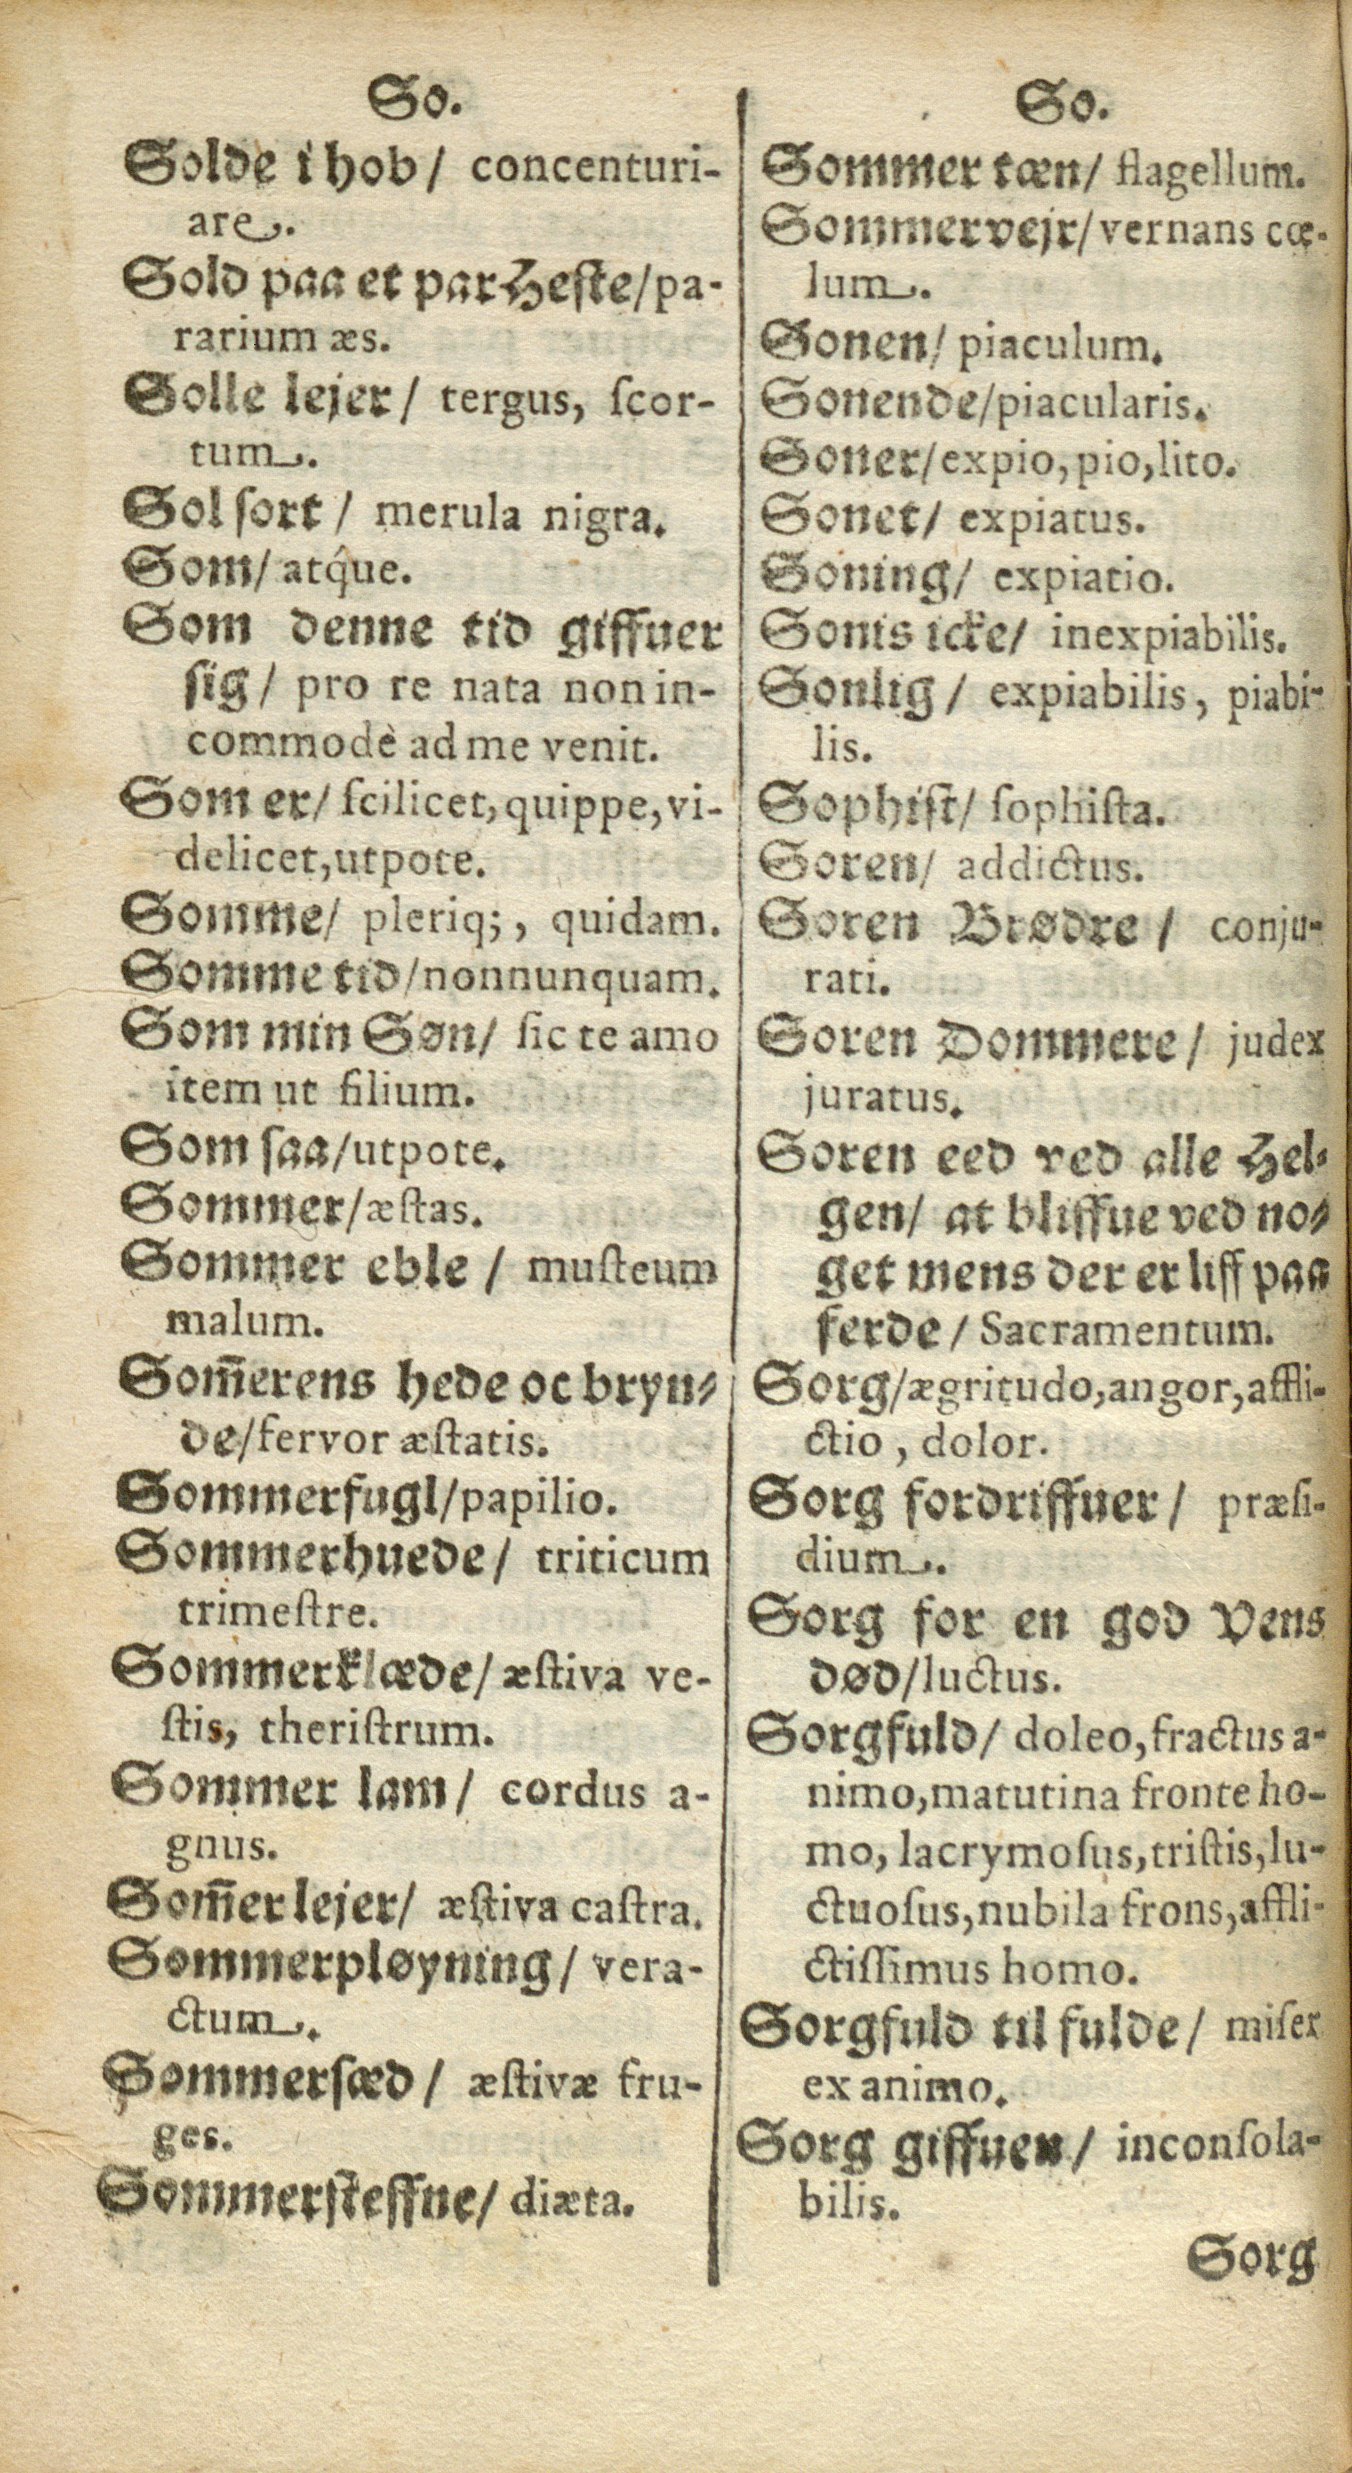 So.
Solde i hob/ concenturi-
are.
Sold paa et par Heste/pa-
rarium æs.
Solle lejer/ tergus, ſcor-
tum.
Sol ſort/ merula nigra.
Som/ atq́ue.
Som denne tid giffuer
ſig/ pro re nata non in-
commodè ad me venit.
Som er/ ſcilicet, quippe, vi-
delicet, utpote.
Somme/ pleriq;, quidam.
Somme tid/nonnunquam.
Som min Søn/ ſic te amo
item ut filium.
Som ſaa/utpote.
Sommer/æſtas.
Sommer eble/ muſteum
malum.
Som̅erens hede oc bryn-
de/fervor æſtatis.
Sommerfugl/papilio.
Sommerhuede/ triticum
trimeſtre.
Sommerklæde/ æſtiva ve-
ſtis, theriſtrum.
Sommer lam/ cordus a-
gnus.
Som̅er lejer/ æſtiva caſtra.
Sommerpløyning/ vera-
ctum.
Sommerſæd/ æſtivæ fru-
ges.
Sommerſteffne/ diæta.
So.
Sommer tæn/ flagellum.
Sommervejr/vernans cœ-
lum.
Sonen/ piaculum.
Sonende/piacularis.
Soner/expio, pio, lito.
Sonet/ expiatus.
Soning/ expiatio.
Sonis icke/ inexpiabilis.
Sonlig/ expiabilis, piabi-
lis.
Sophiſt/ ſophiſta.
Soren/ addictus.
Soren Brødre/ conju-
rati.
Soren Dommere/ judex
juratus.
Soren eed ved alle Hel-
gen/ at bliffue ved no-
get mens der er liff paa
ferde/ Sacramentum.
Sorg/ægritudo, angor, affli-
ctio, dolor.
Sorg fordriffuer/ præſi-
dium.
Sorg for en god Vens
død/luctus.
Sorgfuld/ doleo, fractus a-
nimo, matutina fronte ho-
mo, lacrymoſus, triſtis, lu-
ctuoſus, nubila frons, affli-
ctiſſimus homo.
Sorgfuld til fulde/ miſer
ex animo.
Sorg giffuen/ inconſola-
bilis.
Sorg